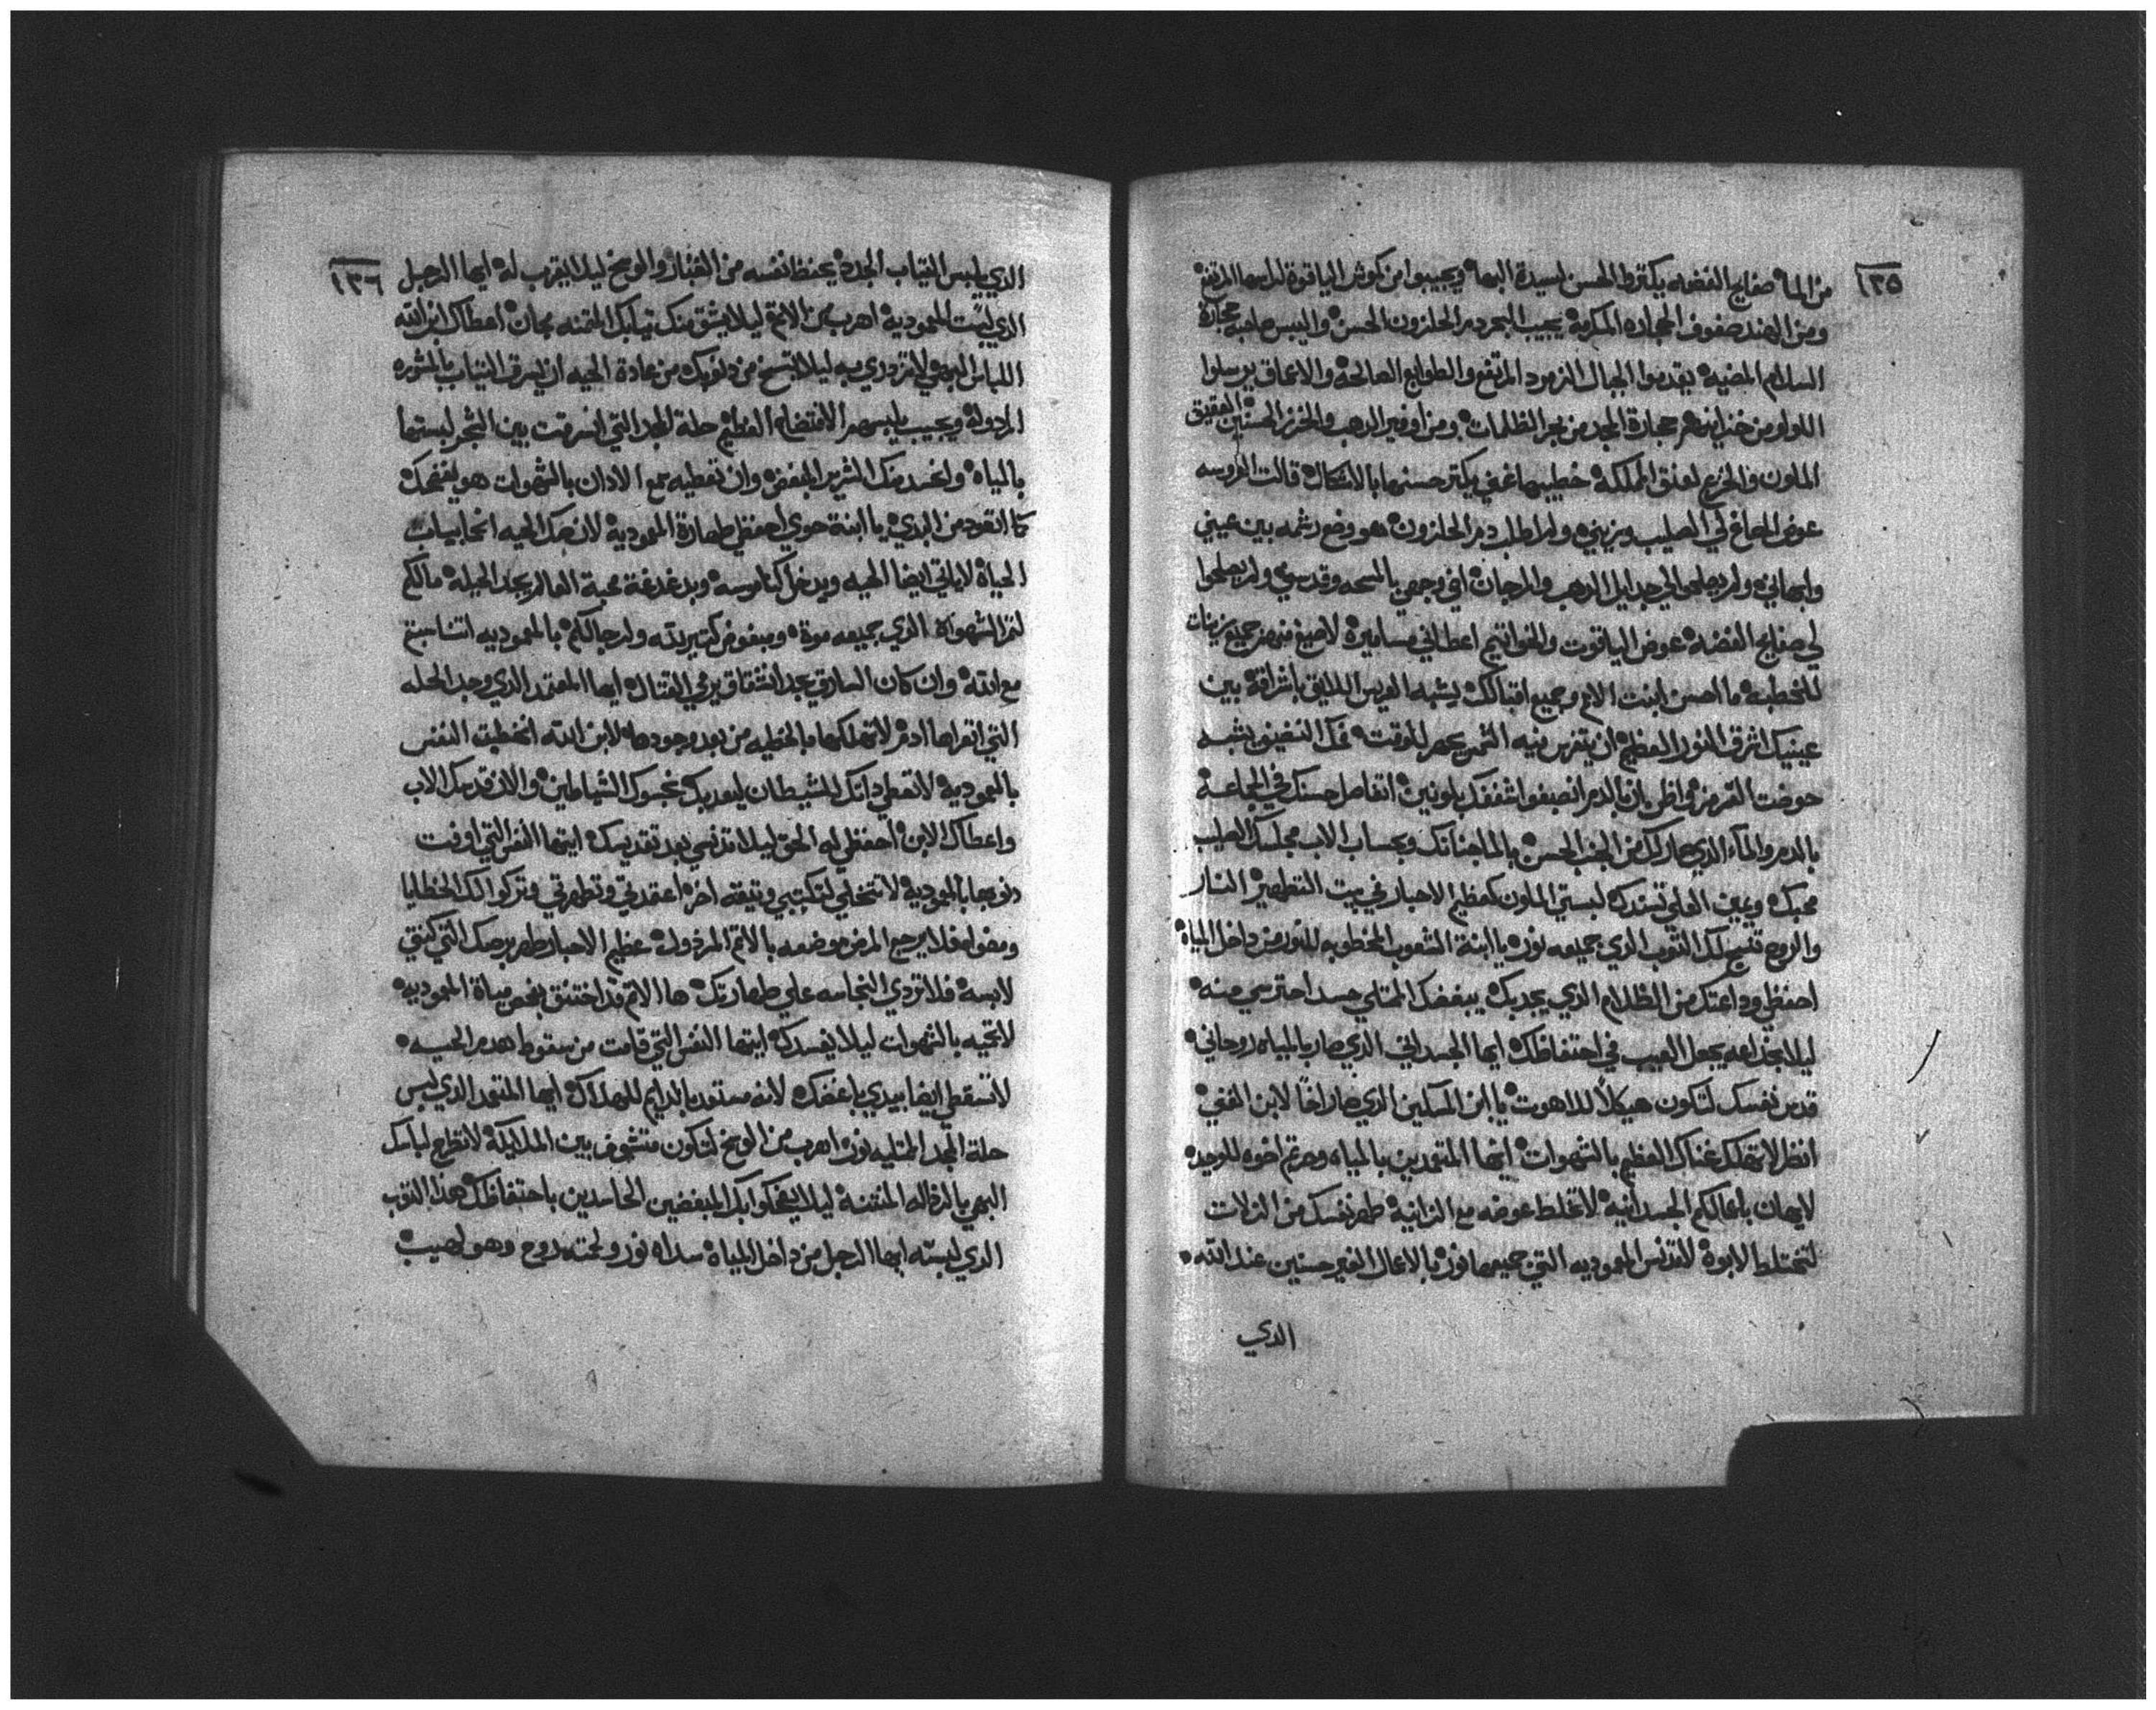 ١٣٥
من الماء صفايح الفضه يكتروا الحسن لسيدة البها ويجيبوا من كوش الياقوت لراسها المرتفع
ومن الهند صفوف الحجاره المكرمة يجيب البحر دم الحلزون الحسن والبس صاحبة حجارة
السلام المضيه يقدموا الجبال الزمرد المرتفع والطوابع الصالحة والاعماق يرسلوا
اللولو من خزاينهم حجارة المجد من بحر الظلمات ومن اوفير الدهب والخرز الحسنين العقيق
الملون والجزع لعنق الملكة خطيبها غني يكتر حسنها بالاشكال قالت العروسه
عوض المصاغ لي الصليب يزيني ولم اطلب دم الحلزون هو وضع رشمه بين عيني
وابهاني ولم يصلحوا لي جدايل الدهب والمرجان افي وجهي بالمسحه وقدسني ولم يصلحوا
لي صفايح الفضه عوض الياقوت والخواتيم اعطاني مساميره لاصيغ منهم جميع زينات
للخطبه ما احسن ابنت الامم وجميع اقبالك يشبه العريس اللايق باشراقه بين
عينيك اشرق النور العظيم ان يتفرس فيه الشمس يحمر للوقت فمك النضيف يشبه
حوضت القرمز في اظن ان بالدم انصبغوا شففك بلونين اتفاصل حسنك في الجماعة
بالدم والماء الذي صار لك من الجنب الحسن بالما جنانك وبحساب الاب مجلسك الصليب
محبك ويمين العلي تسندك لبستي الملون كعظيم الاحبار في بيت التطهير النار
والروح تنسج لك التوب الذي جميعه نور يا ابنة الشعوب المخطوبه للنور من داخل المياه
احفظي وداعتك من الظلام الذي يجديك يبغضك الممتلي حسد احترسي منه
ليلا بخداعه يجعل العيب في احتفاظك ايها الجسداني الذي صار بالمياه روحاني
قدس نفسك لتكون هيكلاً للاهوت يا ابن المسكين الذي صار اخاً لابن الغني
انظر لا تهلك غناك العظيم بالشهوات ايها المتعمدين بالمياه وصرتم اخوه للوحيد
لا يهان باعمالكم الجسدانيه لا تخلط عوضه مع الزانية طهر نفسك من الزلات
لتختلط الابوة لا تدنس المعموديه التي جميعها نور بالاعمال الغير حسنين عند الله
الذي
١٣٦
الذي يلبس التياب الجدد يحفظ نفسه من الغبار والوسخ ليلا يقرب له ايها الرجل
الذي لبست المعموديه اهرب من الاتم ليلا يشق منك تيابك المتمنه مجان اعطاك ابن الله
اللباس البهي لا تزدري به ليلا يتسخ من دنوبك من عادة الحيه ان تسرق التياب بالمشوره
المردوله ويجيب يلبسهم الافتضاح العظيم حلة المجد التي انسرقت بين الشجر لبستها
بالمياه ولحسد منك الشرير المبغض وان تعطيه سمع الادان بالشهوات هو يفضحك
كما اتعود من البدي يا ابنة حوي احفظي طهارة المعموديه لان ضحك الحيه انحا بيات
الحياة لا ياتي ايضا الحيه ويدخل كناموسه وبدغدغة محبة العالم يجد الحيله مالكم
لتمر الشهواة الذي جميعه موت ومبغوض كتير بدته ولرجالكم بالمعموديه اتناسبتم
مع الله وان كان السارق يجد اشتقاق يرمي القتال ايها المعتمد الذي وجد الحله
التي اتعراها ادم لا تهلكها بالخطيه من بعد وجودها لابن الله انخطبت النفس
بالمعموديه لا تعطي داتك للشيطان ليعديك نجسوك الشياطين والان قدسك الاب
واعطاك الابن احفظي له الحق ليلا تدنسي بعد تقديسك ايتها النفس التي اوفت
دنوبها بالمعموديه لا تتخلي لتكتبي وتيقه اخره اعتمدتي وتطهرتي وتركوا لك الخطايا
ومضوا فلا يرجع المرض موضعه بالاتم المرذول عظيم الاحبار طهر برصك التي كنتي
لابسه فلا تردي النجاسه علي طهارتك ها الاتم قد اختنق بفحص مياة المعموديه
لا تحيه بالشهوات ليلا يفسدك ايتها النفس التي قامت من سقوط هدم الحيه
لا تسقطي ايضا بيدي باغضك لانه مستعد دايم للهلاك ايها المتعمد الذي لبس
حلة المجد الممتليه نور اهرب من الوسخ لتكون متشوف بين الملايكة لا تطرح لباسك
البهي بالرذاله المنتنة ليلا يضحكوا بك المبغضين الحاسدين باحتفاظك هذا التوب
الذي لبسته ايها الرجل من داخل المياه سداه نور ولحمته روح وهو لهيب